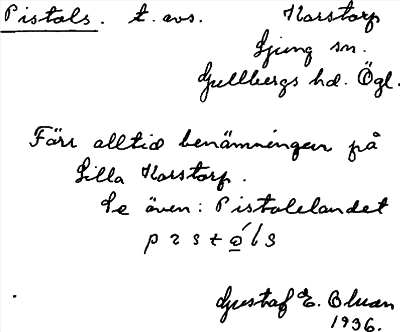 Pistols. t. avs. Korstorp
Ljung sn.
Gullbergs hd. Ögl.
Förr alltid benämningen på
Lilla Korstorp.
Se även: Pistolelandet
Gustaf E.
1936.